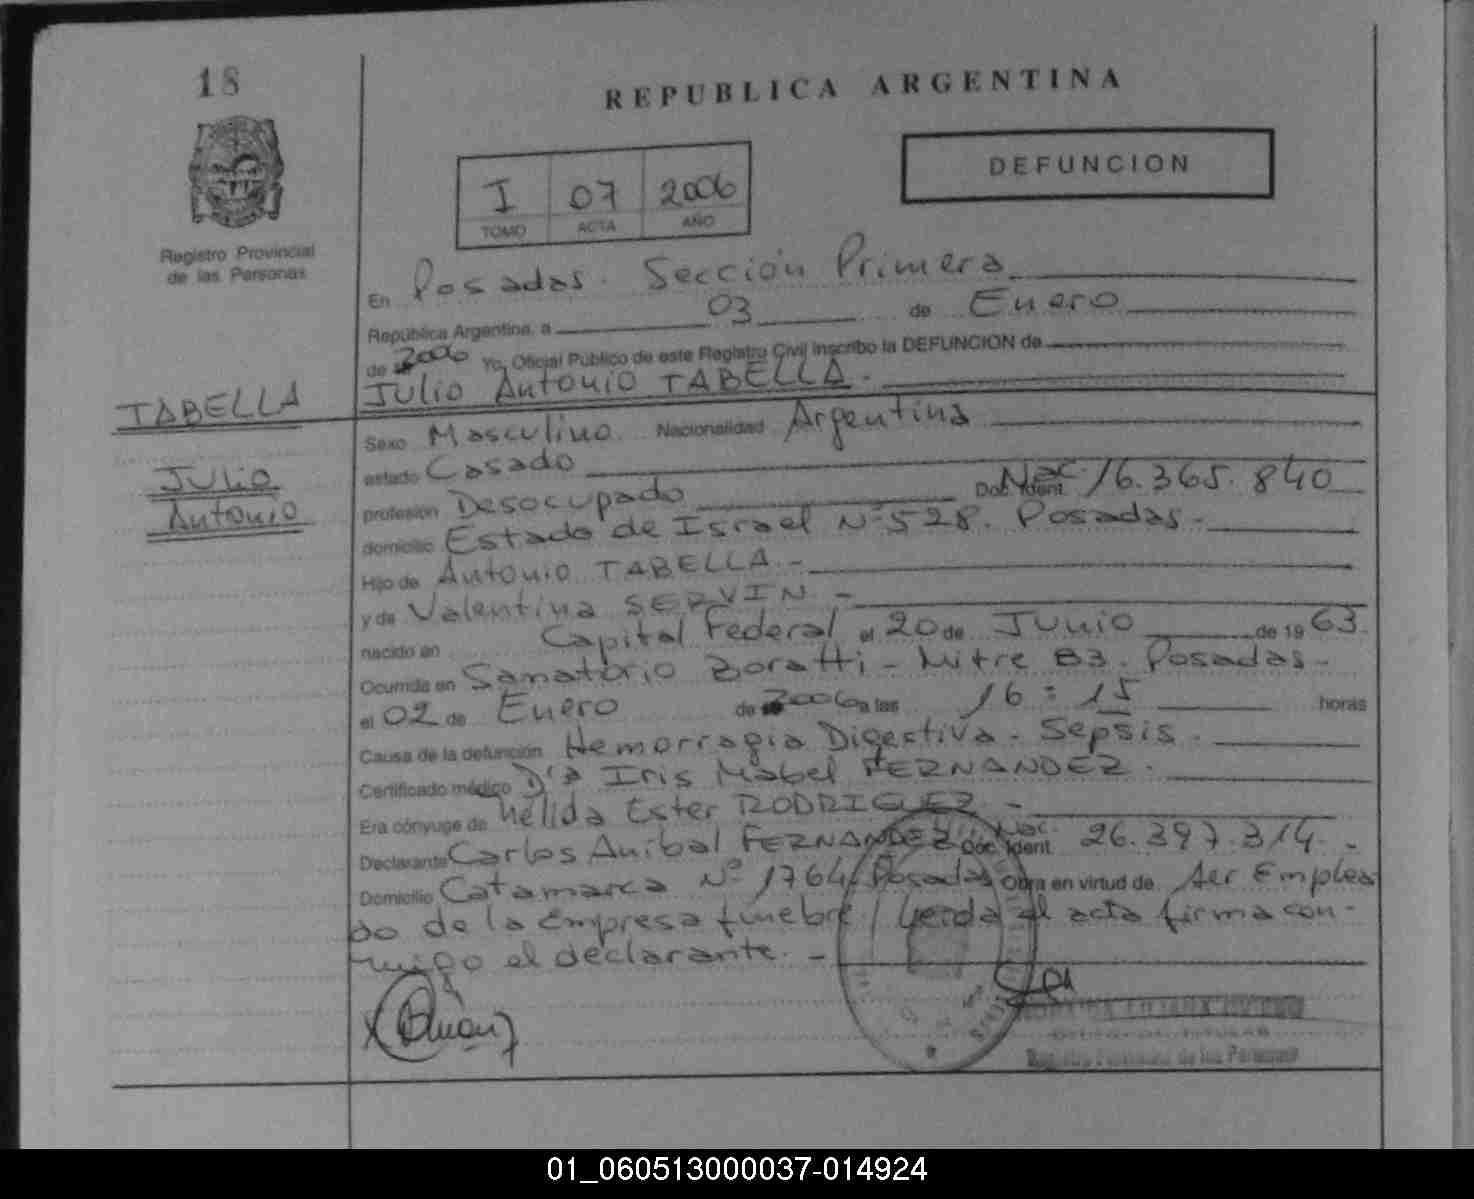 18
REPUBLICA ARGENTINA
DEFUNCION
I 07 2006
TOMO ACTA AÑO
Registro Provincial
de las Personas
En Posadas. Sección Primera
República Argentina, a 03 de Enero
de 2006 Yo, Oficial Público de este Registro Civil inscribo la DEFUNCION de
Julio Antonio TABELLA.-
TABELLA
Julio
Antonio
Sexo Masculino Nacionalidad Argentina
estado Casado
profesión Desocupado Doc. Ident. Nac. 16.365.840
domicilio Estado de Israel Nº 528. Posadas.-
Hijo de Antonio TABELLA.-
y de Valentina SERVIN.-
nacido en Capital Federal el 20 de Junio de 1963.
Ocurrida en Sanatorio Boratti - Mitre 83. Posadas-
el 02 de Enero de 2006 a las 16:15 horas
Causa de la defunción Hemorragia Digestiva - Sepsis.
Certificado médico Dra Iris Mabel FERNANDEZ.
Era cónyuge de Nélida Ester RODRIGUEZ.-
Declarante Carlos Anibal FERNANDEZ Doc. Ident. Nac. 26.397.314.-
Domicilio Catamarca Nº 1764, Posadas Obra en virtud de ser Emplea
do de la empresa funebre/ Leida el acta firma con-
migo el declarante.-
Registro Provincial de las Personas
01_060513000037-014924